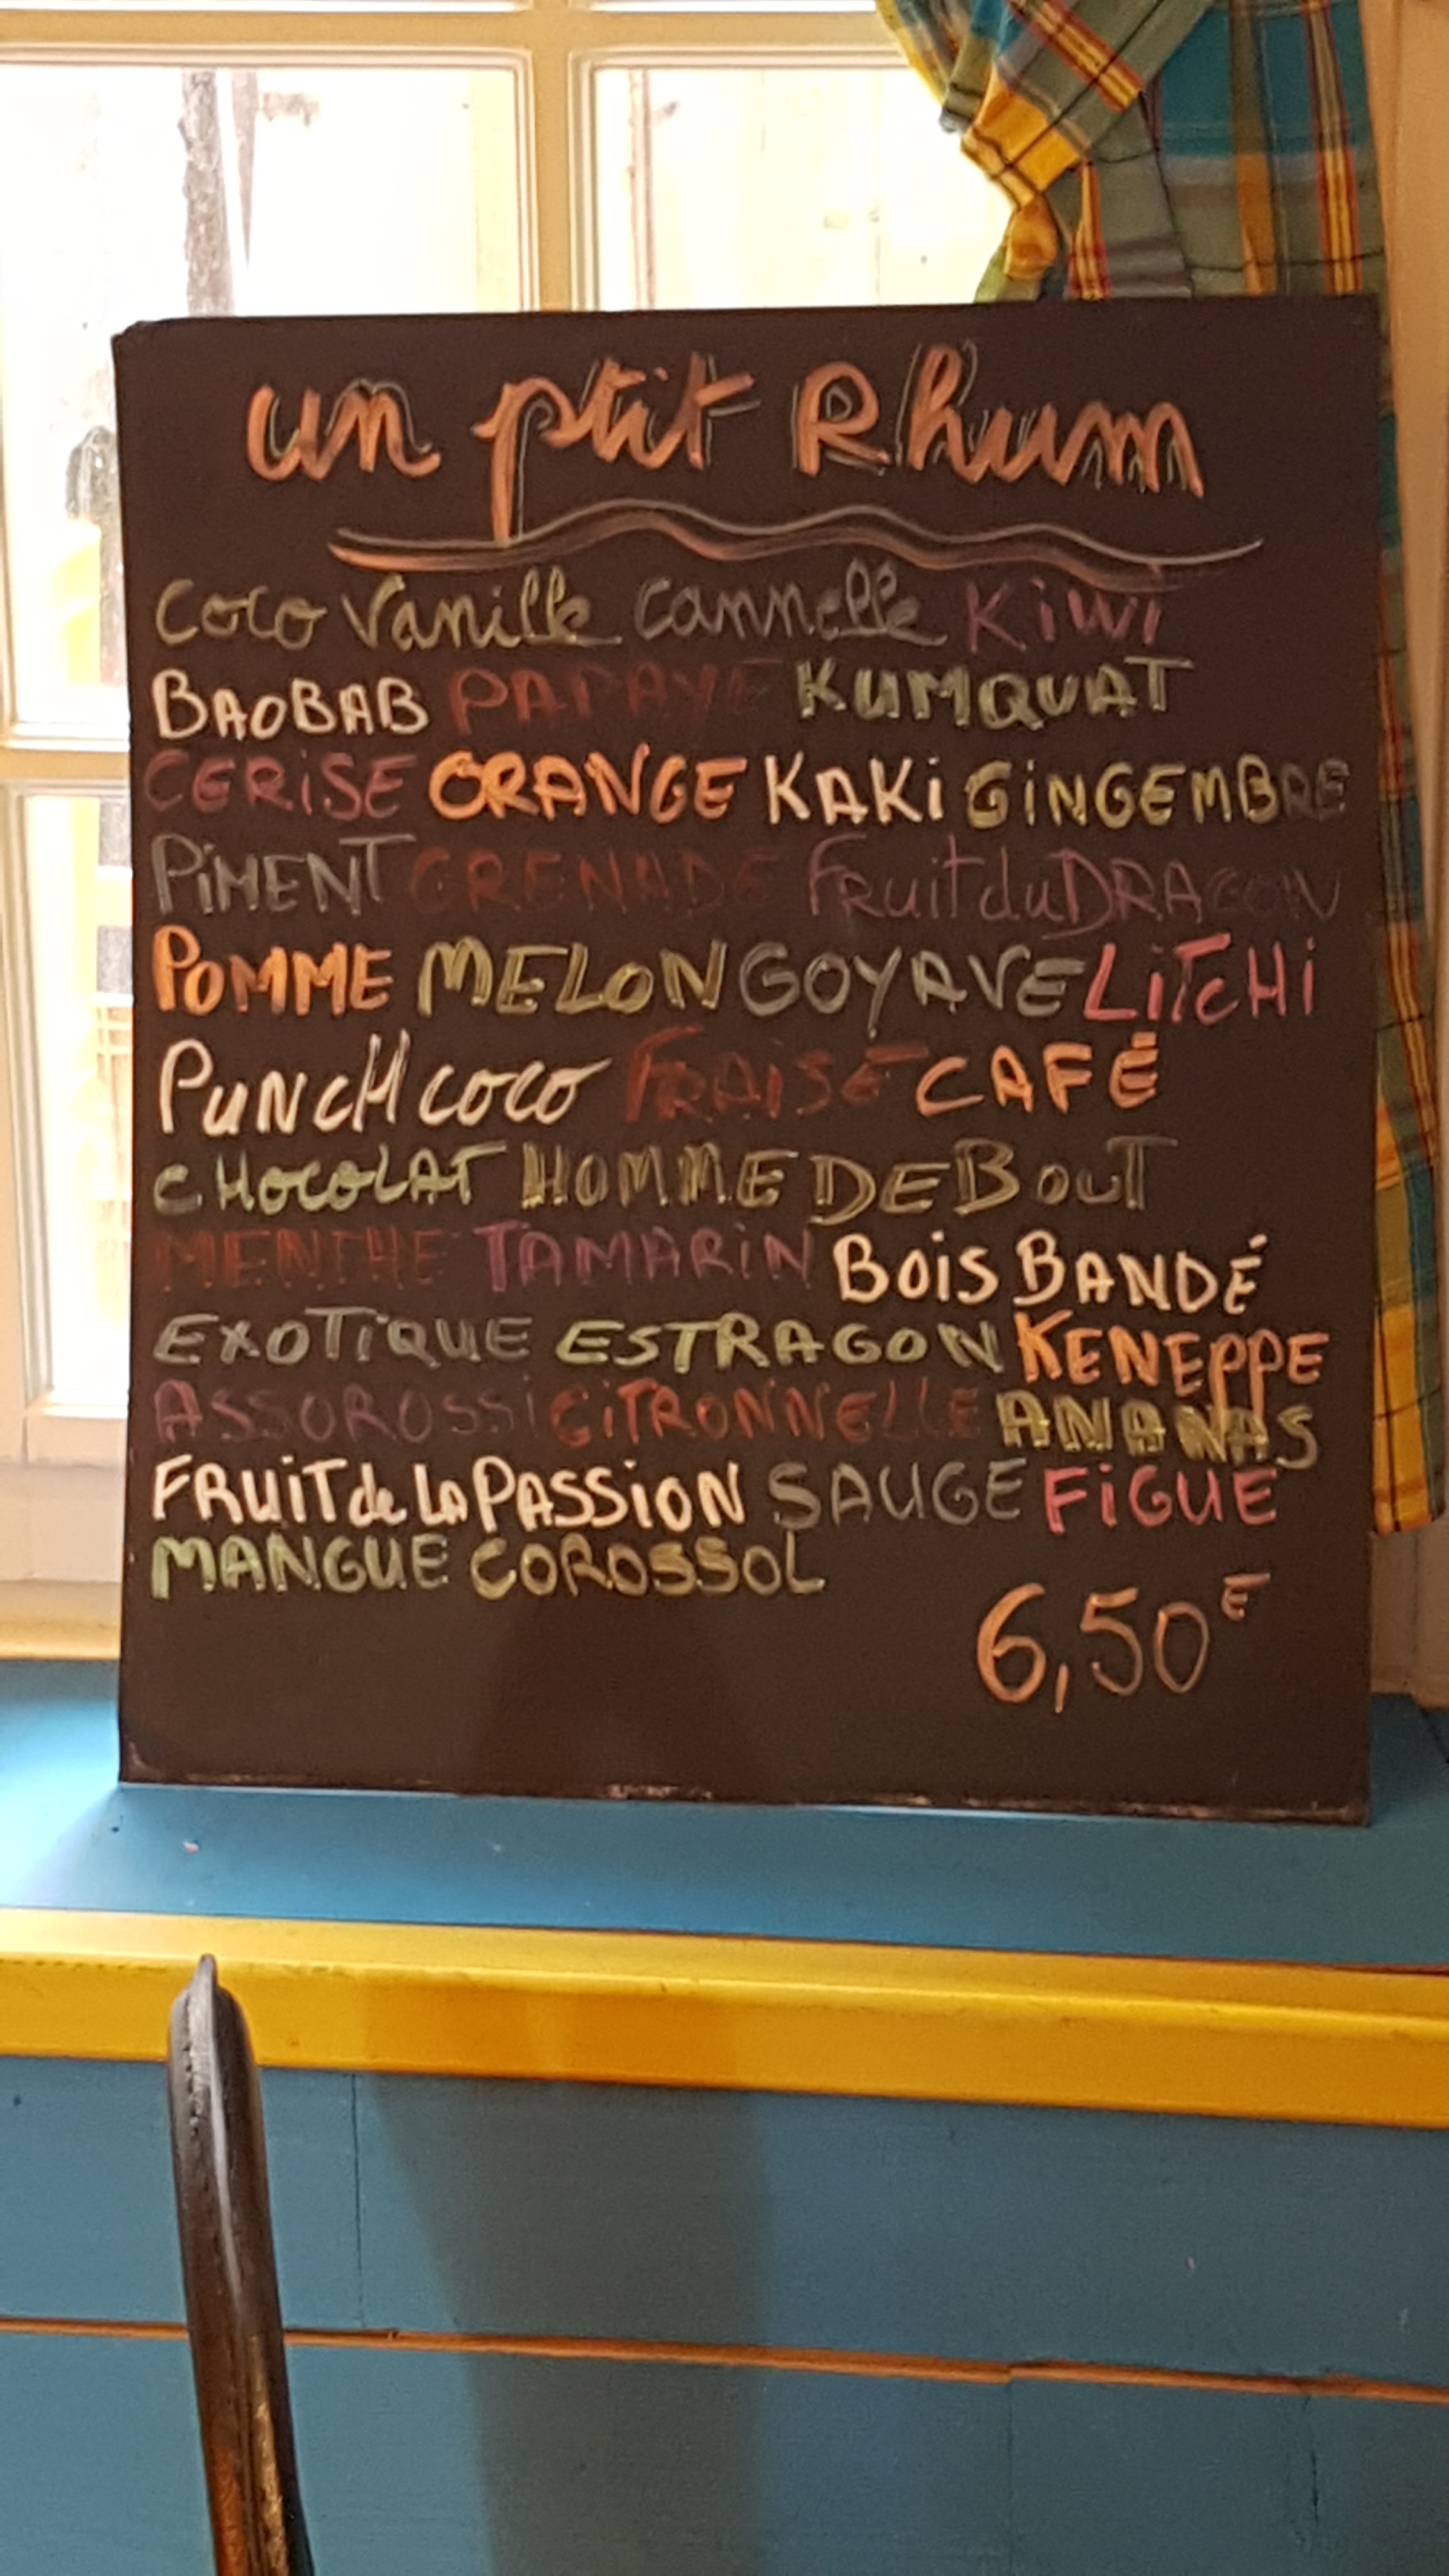 un ptit Rhum
Coco Vanille Cannelle KiWi
BAOBAB PAPAYE KUMQUAT
CERiSE ORANGE KAKi GiNGEMBRE
PiMENT GRENADE FRuit du DRAGON
POMME MELON GOYAVE LiTCHi
PUNCH COCO FRAiSE CAFÉ
CHOCOLAT HOMME DEBOUT
MENTHE TAMARiN BOiS BANDÉ
EXOTiQUE ESTRAGON KENEPPE
ASSOROSSi CiTRONNELLE ANANAS
FRUiT de LA PASSiON SAUGE FiGUE
MANGUE COROSSOL
6,50€